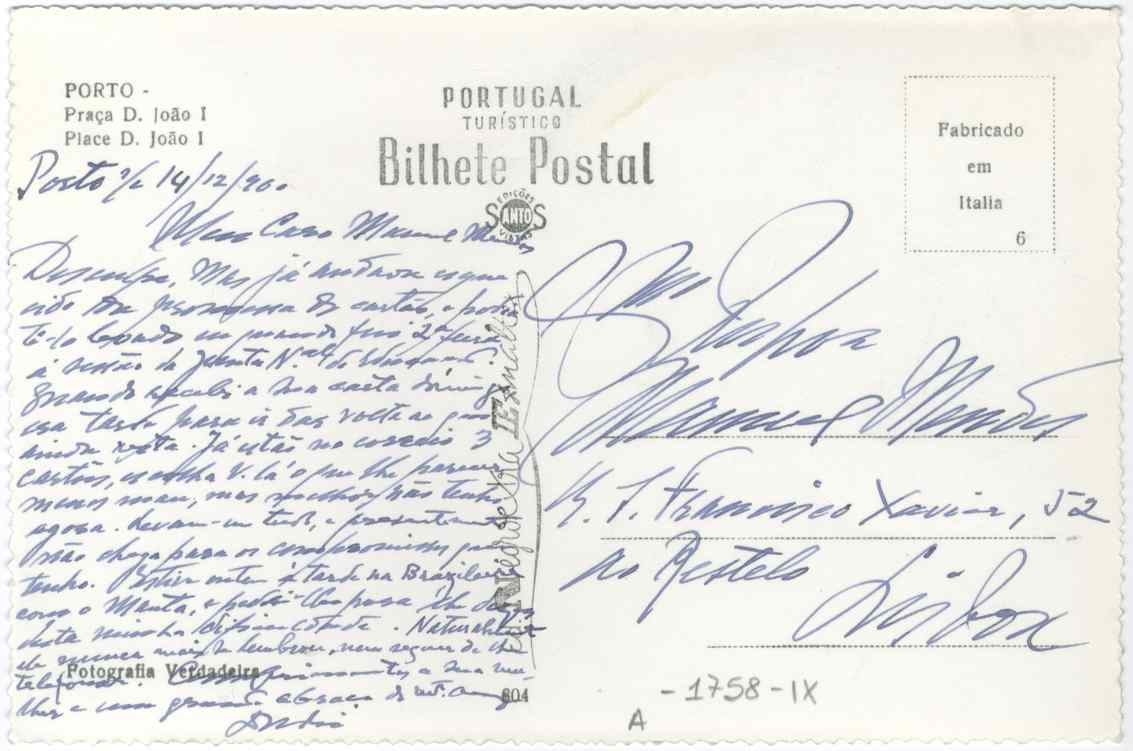 PORTO -
Praça D. João I
Place D. João I
PORTUGAL
TURÍSTICO
Bilhete Postal
EDIÇÕES
SANTOS
VISTAS
Fabricado
em
Italia
6
Porto 14/12/
Meu Caro Manuel Mendes
Desculpe, Mas já andava esque
cido da promessa do cartão, e
2ª feira
à sessão da Junta N.al de Educação.
Quando recebi a sua carta
tarde para
ainda resta. Já estão no correio 3
cartões, escolha V. lá o que lhe pareça
menos mau, mas melhor não tenho
agora. Levam-me tudo, e presentemente
não chega para os compromissos que
tenho. Estive ontem à tarde na Brazileira
com o Manta, e pedi-lhe para lhe
desta minha dificuldade. Naturalmente
ele nunca mais se lembrou, nem
telefonar. Cumprimentos a sua mu-
lher e um grande abraço do
Fotografia Verdadeira
804
Manuel Mendes
R. S. Francisco Xavier, 52
Ao Restelo
Lisboa
- 1758 - IX
A